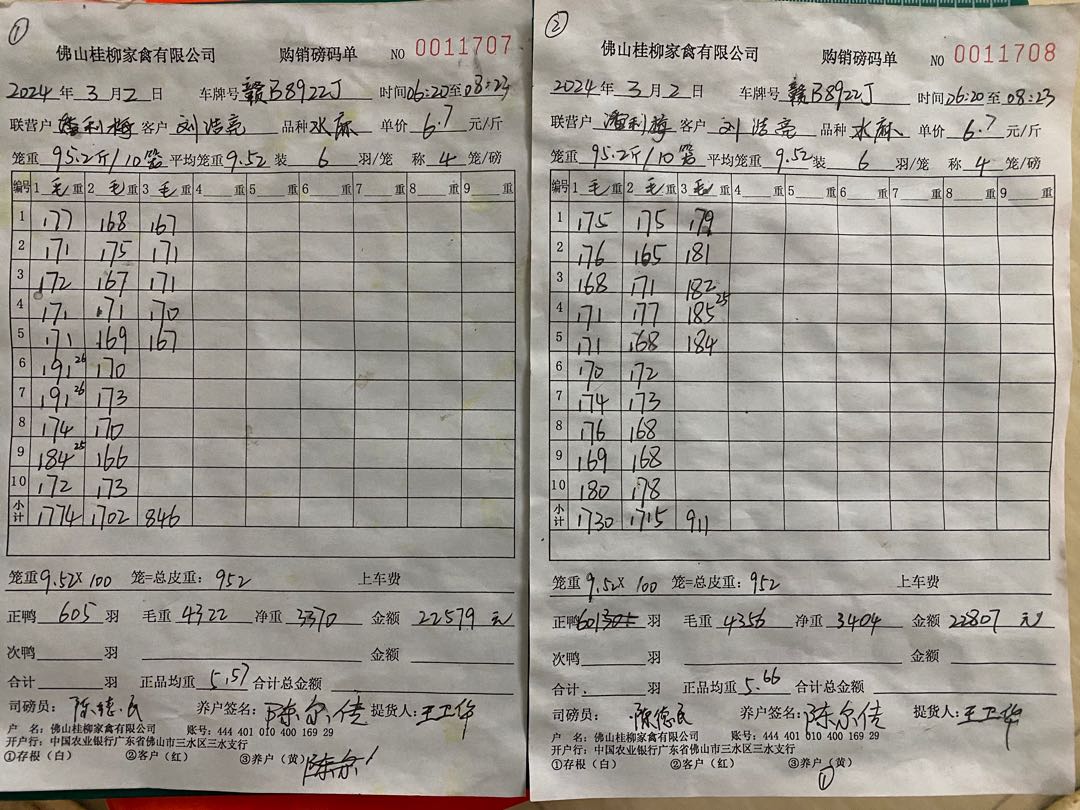 ①
佛山桂柳家禽有限公司 购销磅码单 NO 0011707
2024年3月2日 车牌号 赣B8922J 时间06:20至08:23
联营户 潘利梅 客户 刘浩亮 品种 水麻 单价 6.7 元/斤
笼重 95.2斤/10笼 平均笼重 9.52 装 6 羽/笼 称 4 笼/磅
编号 1 毛 重 2 毛 重 3 毛 重 4 重 5 重 6 重 7 重 8 重 9 重
1 177 168 167
2 171 175 171
3 172 167 171
4 171 171 170
5 171 169 167
6 191 26 170
7 191 26 173
8 174 170
9 184 25 166
10 172 173
小计 1774 1702 846
笼重 9.52× 100 笼=总皮重: 952 上车费
正鸭 605 羽 毛重 4322 净重 3370 金额 22579 元
次鸭 羽 金额
合计 羽 正品均重 5.57 合计总金额
司磅员: 陈德民 养户签名: 陈尔信 提货人: 王卫华
户 名: 佛山桂柳家禽有限公司 账号: 444 401 010 400 169 29
开户行: 中国农业银行广东省佛山市三水区三水支行
①存根(白) ②客户(红) ③养户(黄)
②
佛山桂柳家禽有限公司 购销磅码单 NO 0011708
2024年3月2日 车牌号 赣B8922J 时间06:20至08:23
联营户 潘利梅 客户 刘浩亮 品种 水麻 单价 6.7 元/斤
笼重 95.2斤/10笼 平均笼重 9.52 装 6 羽/笼 称 4 笼/磅
编号 1 毛 重 2 毛 重 3 毛 重 4 重 5 重 6 重 7 重 8 重 9 重
1 175 175 179
2 176 165 181
3 168 171 182
4 171 177 185 25
5 171 168 184
6 170 172
7 174 173
8 176 168
9 169 168
10 180 178
小计 1730 1715 911
笼重 9.52× 100 笼=总皮重: 952 上车费
正鸭 601 羽 毛重 4356 净重 3404 金额 22807 元
次鸭 羽 金额
合计 羽 正品均重 5.66 合计总金额
司磅员: 陈德民 养户签名: 陈尔信 提货人: 王卫华
户 名: 佛山桂柳家禽有限公司 账号: 444 401 010 400 169 29
开户行: 中国农业银行广东省佛山市三水区三水支行
①存根(白) ②客户(红) ③养户(黄)
①